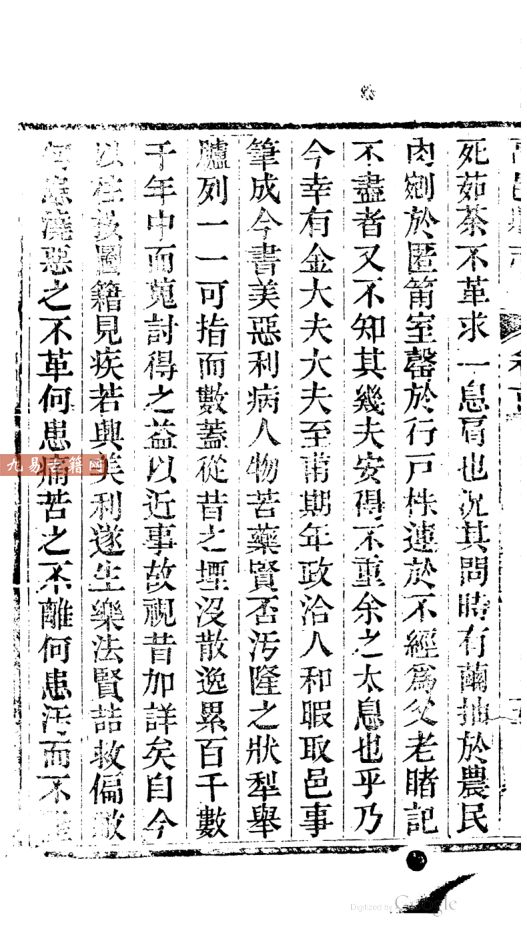 死茹茶不革求一息肩也况其間時有繭抽於農民
肉剜於匿筩室罄於行戸株連於不經爲父老睹記
不盡者又不知其幾夫安得不重余之太息也乎乃
今幸有金大夫大夫至甫期年政洽人和暇取邑事
筆成今書美惡利病人物苦藥賢否汚隆之狀犁舉
臚列一一可指而數蓋從昔之堙沒散逸累百千數
千年中而蒐討得之益以近事故視昔加詳矣自今
以徃按圖籍見疾若興美利遂生樂法賢喆救偏
何患澆惡之不革何患痛苦之不離何患汚而不
九易古籍网
Digitized by Google